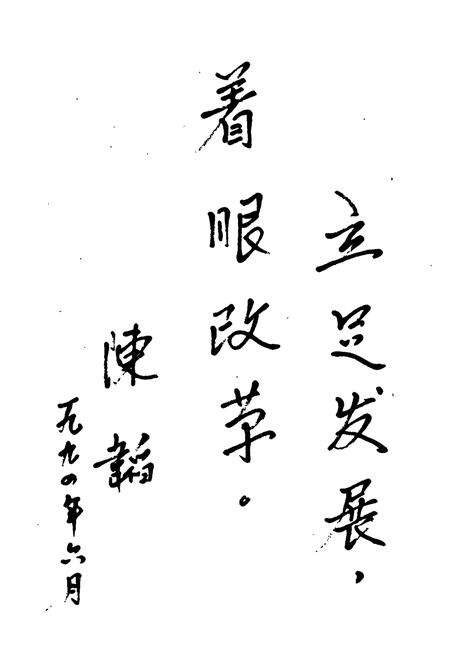 立足发展，
着眼改革。
陳韜
一九九四年六月